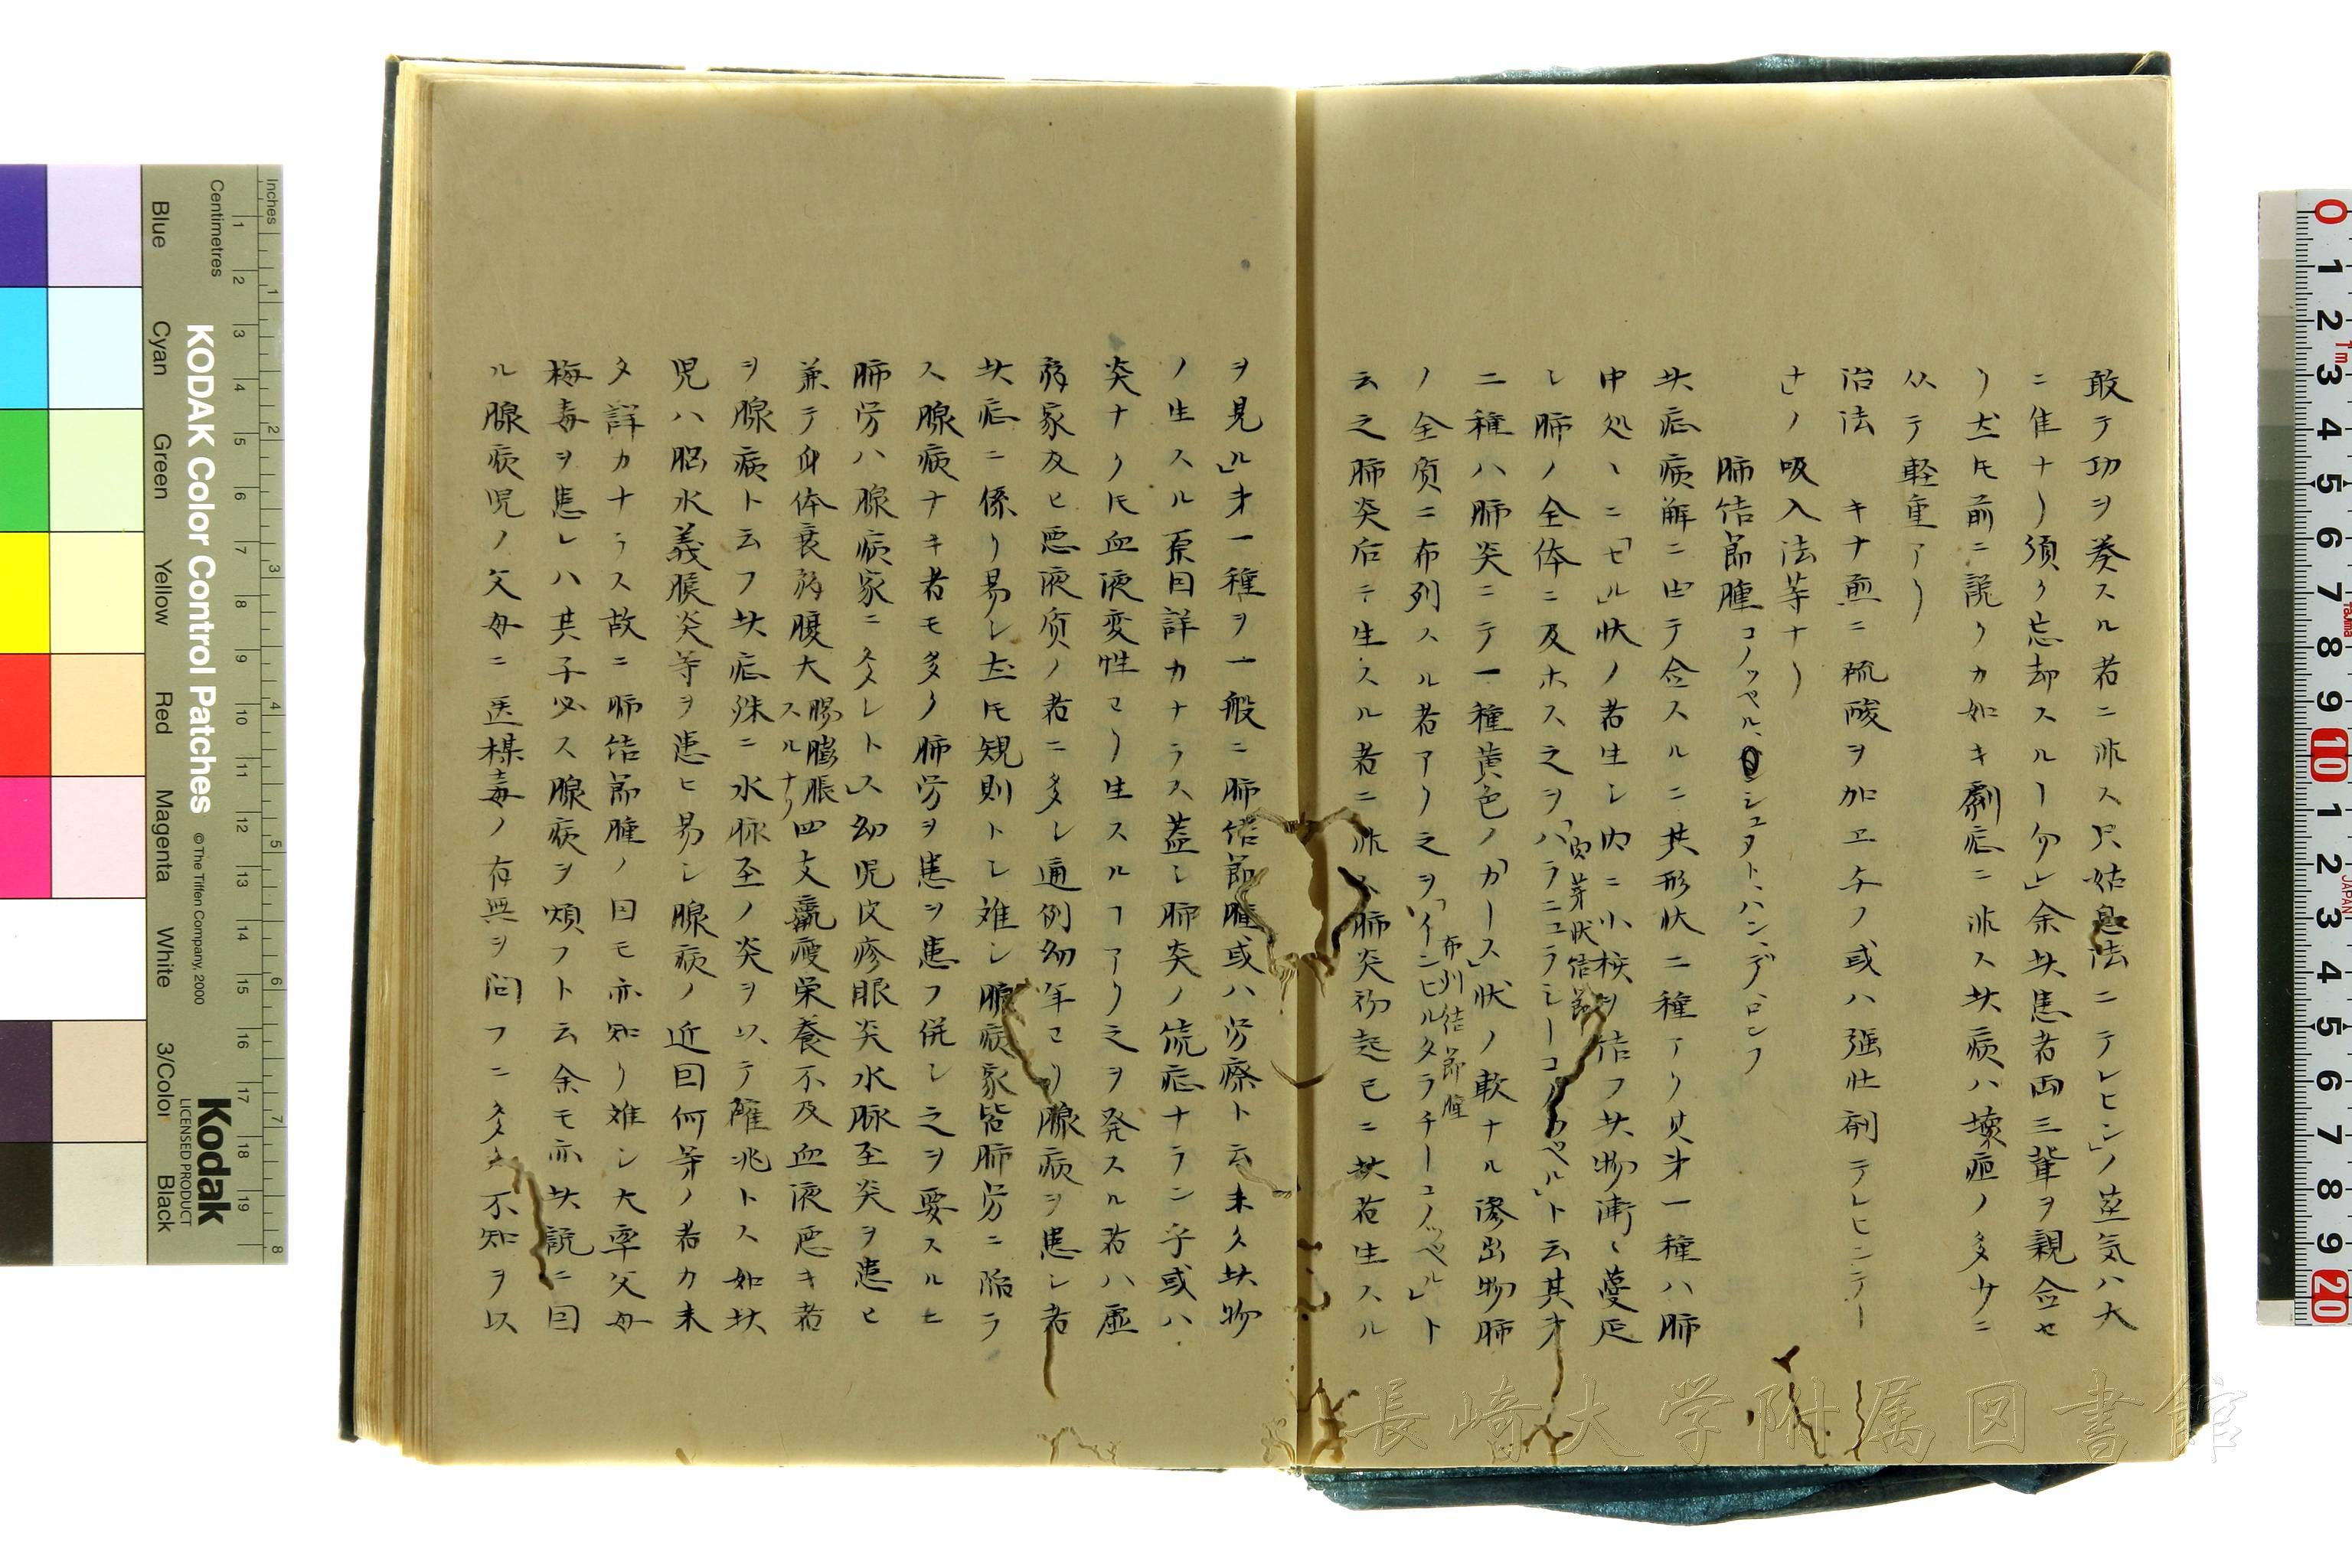 敢テ功ヲ奏スル者ニ非ス只姑息法ニテレヒン」ノ蒸気ハ大
ニ佳ナリ須ク忘却スルヿ勿」余此患者両三輩ヲ親合セ
リ𪜈前ニ説クカ如キ劇症ニ非ス此病ハ壊疽ノ多少ニ
从テ軽重アリ
治法 キナ煎ニ硫酸ヲ加エ与ノ或ハ強壮剤テレヒンテー
ナ」ノ吸入法等ナリ
肺結節腫コノッペル、
此症病解ニ由テ合スルニ其形状二種アリ其才一種ハ肺
中処々ニ「セル」状ノ者生シ内ニ小核ヲ結フ此物漸々蔓延
シ肺ノ全体ニ及ホス之ヲ「ハラニュラシーコノッペル」ト云其才
肉芽状結節
二種ハ肺炎ニテ一種黄色ノ「カース」状ノ軟ナル滲出物肺
ノ全質ニ布列スル者アリ之ヲ「インヒルタラチーコノッペル」ト
布列結節腫
云之肺炎后ニ生スル者ニ非ス肺炎初起已ニ此者生スル
ヲ見ル」才一種ヲ一般ニ肺結節腫或ハ労療ト云未タ此物
ノ生スル原因詳カナラス蓋シ肺炎ノ続症ナラン乎或ハ
炎ナク𪜈血液変性ヨリ生スルヿアリ之ヲ発スル者ハ虚
弱家及ヒ悪液質ノ者ニ多シ通例幼年ヨリ腺病ヲ患シ者
此症ニ係リ易シ𪜈規則トシ難シ腺病家皆肺労ニ陥ラ
ス腺病ナキ者モ多ク肺労ヲ患ヲ患フ併シ之ヲ要スルニ
肺労ハ腺病家ニ多シトス」幼児皮疹眼炎水脉至炎ヲ患ヒ
兼テ身体衰弱腹大腸膨脹スルナリ四支羸痩栄養不及血液悪キ者
ヲ腺病ト云フ此症殊ニ水脉至ノ炎ヲ以テ確兆トス如此
児ハ脳水義膜炎等ヲ患ヒ易シ腺病ノ近因何等ノ者カ未
タ詳カナラス故ニ肺結節腫ノ因モ亦知リ難シ大率父母
梅毒ヲ患レハ其子必ス腺病ヲ煩フト云余モ亦此説ニ因
ル腺病児ノ父母ニ医楳毒ノ有無ヲ問フニ多ク不知ヲ以
KODAK Color Control Patches
© The Tiffen Company, 2000
Kodak
LICENSED PRODUCT
Inches
Centimetres
Blue
Cyan
Green
Yellow
Red
Magenta
White
3/Color
Black
長崎大学附属図書館